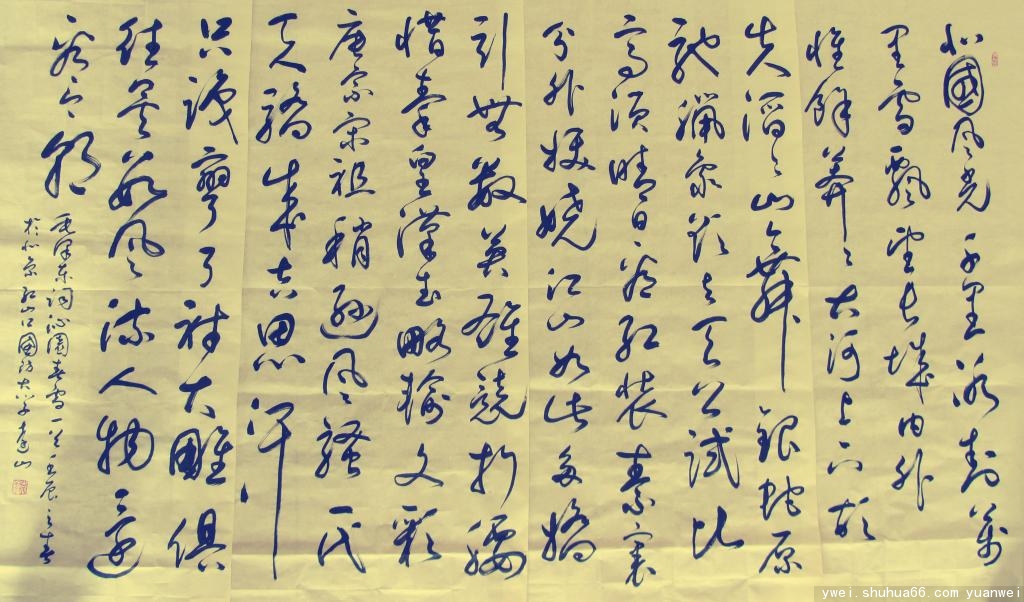 北國風光千里冰封萬
里雪飄望長城內外
惟餘莽莽大河上下頓
失滔滔山舞銀蛇原
馳蠟象欲與天公試比
高須晴日看紅裝素裹
分外妖嬈江山如此多嬌
引無數英雄競折腰
惜秦皇漢武略輸文彩
唐宗宋祖稍遜風騷一代
天驕成吉思汗
只識彎弓射大雕俱
往矣數風流人物還
看今朝
毛澤東詞沁園春雪一首壬辰之春
於北京紅山口國防大學達山
ywei.shuhua66.com yuanwei